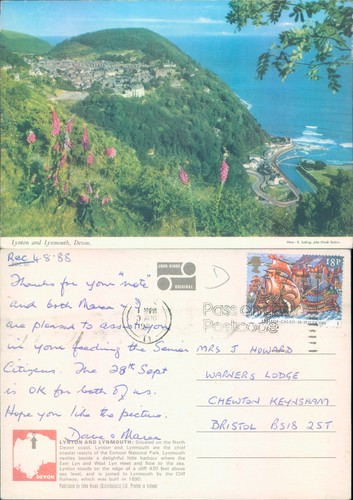 Lynton and Lynmouth, Devon.
Rec 4·8·88
Thanks for your "note"
and both Maree & I
are pleased to assist you
in your feeding the Senior
Citizens. The 28th Sept
is OK for both of us.
Hope you like the picture.
Dave & Maree
JOHN HINDE
ORIGINAL
18P
MRS J HOWARD
WARNERS LODGE
CHEWTON KEYNSHAM
BRISTOL BS18 2ST
DEVON
LYNTON AND LYNMOUTH: Situated on the North
Devon coast, Lynton and Lynmouth are the chief
coastal resorts of the Exmoor National Park. Lynmouth
nestles beside a delightful little harbour where the
East Lyn and West Lyn meet and flow to the sea.
Lynton stands on the edge of a cliff 430 feet above
sea level, and is joined to Lynmouth by the Cliff
Railway, which was built in 1890.